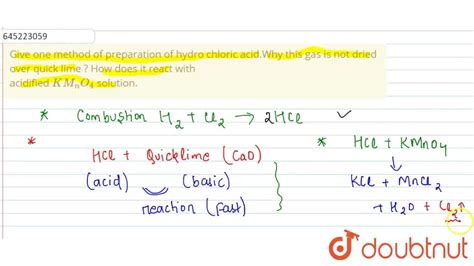 645223059
Give one method of preparation of hydro chloric acid.Why this gas is not dried
over quick lime ? How does it react with
acidified KMnO4 solution.
* Combustion H2 + Cl2 → 2HCl ✓
*
HCl + Quicklime (CaO)
(acid) (basic)
reaction (fast)
* HCl + KMnO4
↓
KCl + MnCl2
+ H2O + Cl2↑
doubtnut